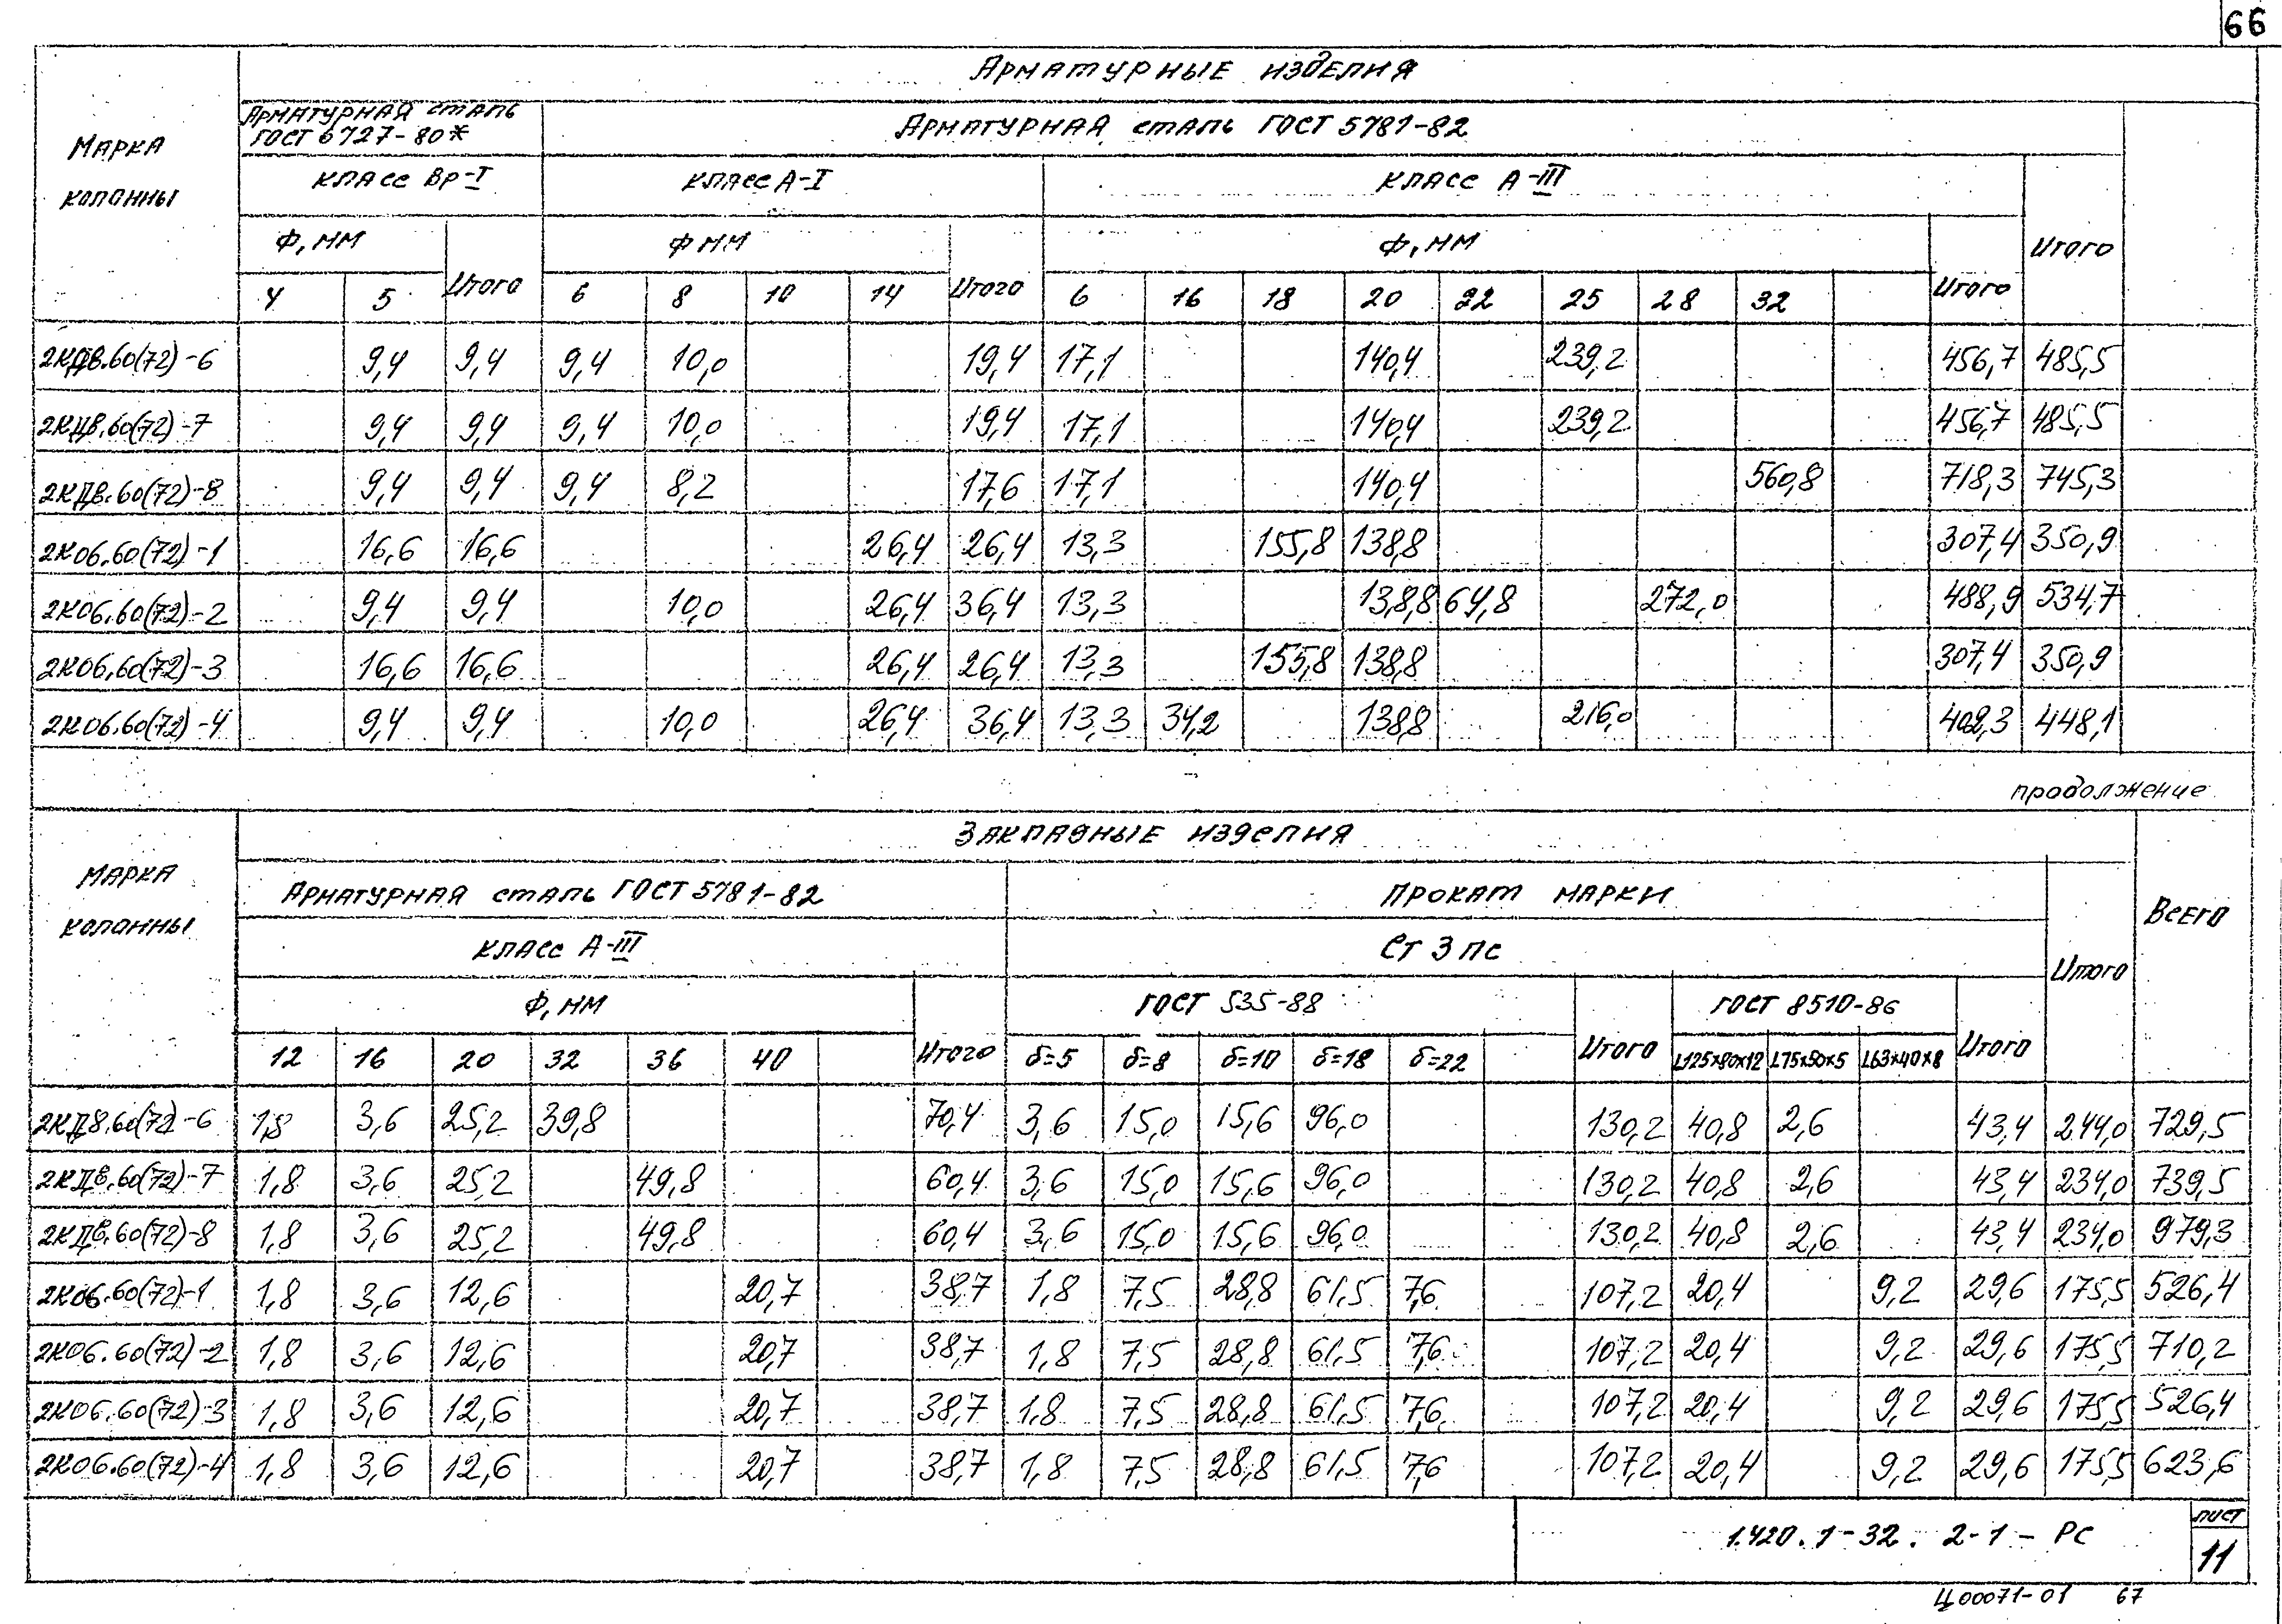 66
Арматурные изделия
Марка колонны
Арматурная сталь ГОСТ 6727-80*
Арматурная сталь ГОСТ 5781-82
класс Вр-I
класс А-I
класс А-III
Итого
Ф, мм
Итого
Ф мм
Итого
Ф, мм
Итого
4 5 6 8 10 14 6 16 18 20 22 25 28 32
2КДв.60(72)-6 9,4 9,4 9,4 10,0 19,4 17,1 140,4 239,2 456,7 485,5
2КДв.60(72)-7 9,4 9,4 9,4 10,0 19,4 17,1 140,4 239,2 456,7 485,5
2КДв.60(72)-8 9,4 9,4 9,4 8,2 17,6 17,1 140,4 560,8 718,3 745,3
2К06.60(72)-1 16,6 16,6 26,4 26,4 13,3 155,8 138,8 307,4 350,9
2К06.60(72)-2 9,4 9,4 10,0 26,4 36,4 13,3 138,8 64,8 272,0 488,9 534,7
2К06.60(72)-3 16,6 16,6 26,4 26,4 13,3 155,8 138,8 307,4 350,9
2К06.60(72)-4 9,4 9,4 10,0 26,4 36,4 13,3 34,2 138,8 216,0 402,3 448,1
продолжение
Закладные изделия
Марка колонны
Арматурная сталь ГОСТ 5781-82
Прокат марки
Всего
класс А-III
Ст 3 пс
Итого
Ф, мм
Итого
ГОСТ 535-88
Итого
ГОСТ 8510-86
Итого
12 16 20 32 36 40 δ=5 δ=8 δ=10 δ=18 δ=22 L125×80×12 L75×50×5 L63×40×8
2КДв.60(72)-6 1,8 3,6 25,2 39,8 70,4 3,6 15,0 15,6 96,0 130,2 40,8 2,6 43,4 244,0 729,5
2КДв.60(72)-7 1,8 3,6 25,2 49,8 60,4 3,6 15,0 15,6 96,0 130,2 40,8 2,6 43,4 234,0 739,5
2КДв.60(72)-8 1,8 3,6 25,2 49,8 60,4 3,6 15,0 15,6 96,0 130,2 40,8 2,6 43,4 234,0 979,3
2К06.60(72)-1 1,8 3,6 12,6 20,7 38,7 1,8 7,5 28,8 61,5 7,6 107,2 20,4 9,2 29,6 175,5 526,4
2К06.60(72)-2 1,8 3,6 12,6 20,7 38,7 1,8 7,5 28,8 61,5 7,6 107,2 20,4 9,2 29,6 175,5 710,2
2К06.60(72)-3 1,8 3,6 12,6 20,7 38,7 1,8 7,5 28,8 61,5 7,6 107,2 20,4 9,2 29,6 175,5 526,4
2К06.60(72)-4 1,8 3,6 12,6 20,7 38,7 1,8 7,5 28,8 61,5 7,6 107,2 20,4 9,2 29,6 175,5 623,6
1.420.1-32.2-1-РС
лист
11
Ц00071-01 67